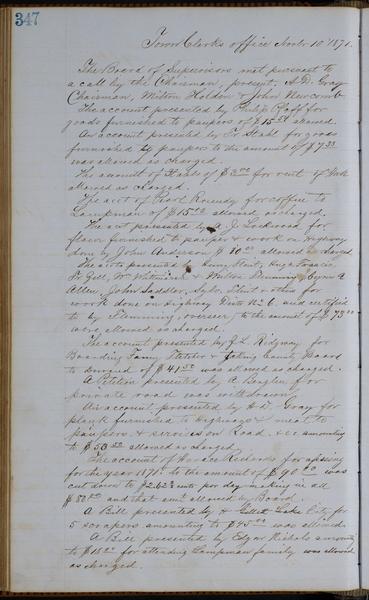 347
Town Clerks office Novbr 10th 1871.
The Board of Supervisors met pursuant to
a call by the Chairman, present, A. D. Gray
Chairman, Milton Holden & John Newcomb
The account presented by Philip Pfaff for
goods furnished to paupers of $15.54 allowed.
An account presented by Fr Stahl for goods
furnished to paupers to the amount of $7.33
was allowed as charged.
The amount of of $3.00 for rent of
allowed as charged.
The acct of Roundy for coffin to
Lampman of $15.00 allowed as charged.
The acct presented by A. J. Lockwood for
flour furnished to pauper & work on Highway
done by John Anderson $ allowed as charged.
The accts presented by
Fr Gell, Wm & Milton
Allen, John Saddler, & others for
work done on Highway Dist No 6, and certified
to by Flemming, overseer, to the amount of $73
were allowed as charged.
The account presented by J. L. Ridgway for
Boarding Fanny & taking Board
to of $41.50 was allowed as charged.
A Petition presented by A. for
private road was withdrawn
An account presented by A. D. Gray for
plank furnished to Highways & meat to
paupers & services on Road &c &c amounting
to $50.50 allowed as charged.
The account of for assessing
for the year 1871 to the amount of $90.00 was
cut down to $2.62½ cents per day making in all
$80 and that amt allowed by Board.
A Bill presented by Lake City for
5 scrapers amounting to $45.00 was allowed.
A Bill presented by Edgar Nichols amounting
to $15.00 for attending Lampman family was allowed
as charged.